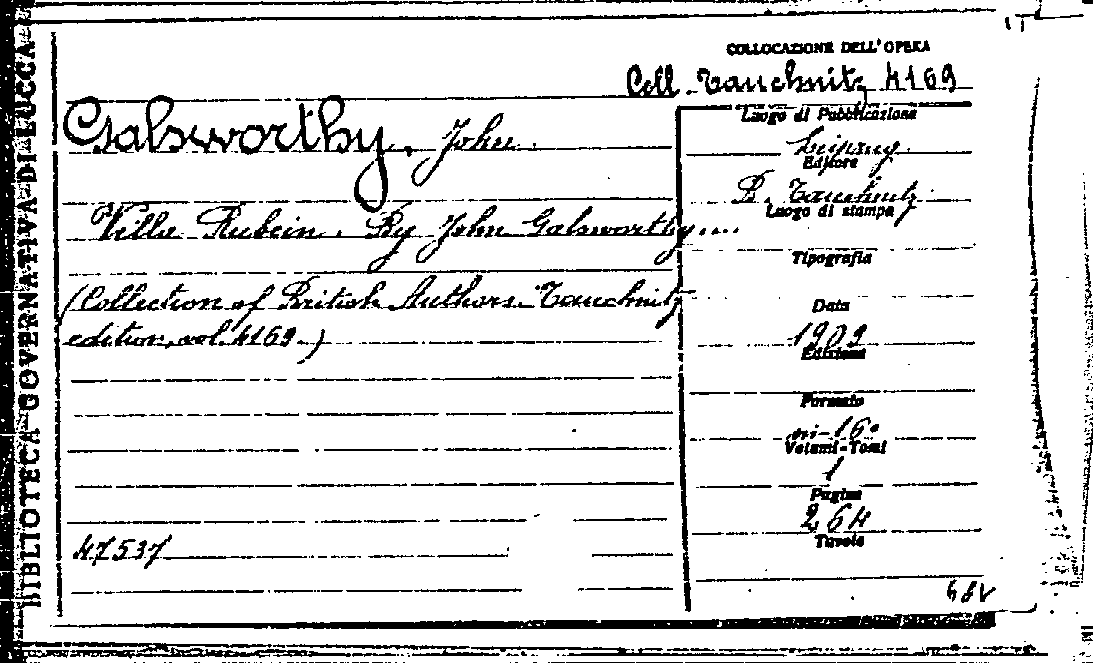 BIBLIOTECA GOVERNATIVA DI LUCCA
COLLOCAZIONE DELL'OPERA
Coll. Tauchnitz 4169
Galsworthy, John.
Villa Rubein. By John Galsworthy....
(Collection of British Authors. Tauchnitz
edition, vol. 4169.)
47537
Luogo di Pubblicazione
Leipzig
Editore
B. Tauchnitz
Luogo di stampa
Tipografia
Data
1909
Edizione
Formato
in-16°
Volumi-Tomi
1
Pagine
264
Tavole